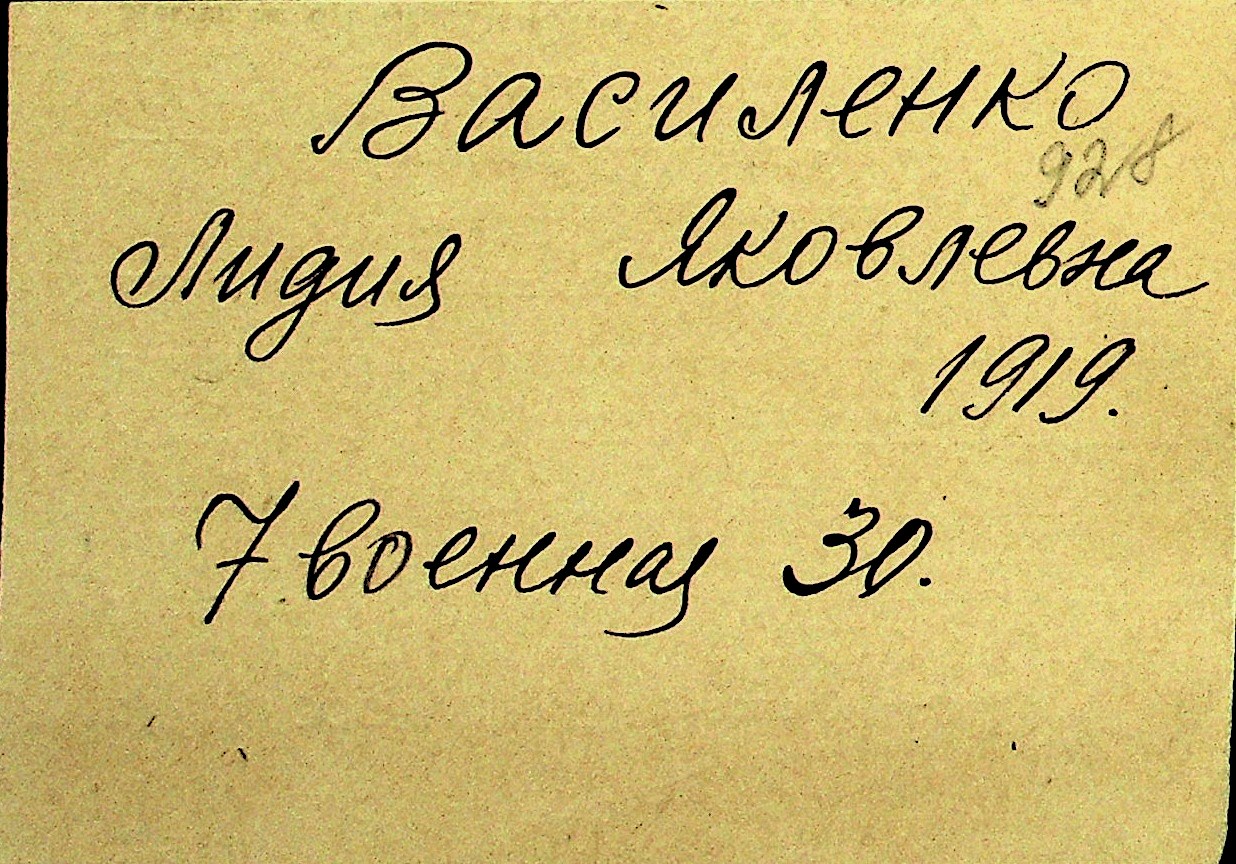 Василенко
928
Лидия Яковлевна
1919.
7 военная 30.